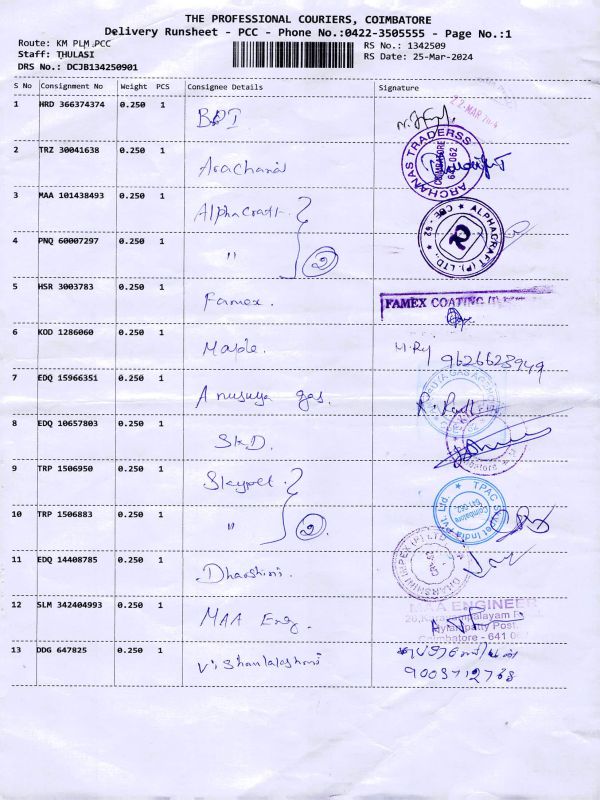 THE PROFESSIONAL COURIERS, COIMBATORE
Delivery Runsheet - PCC - Phone No.:0422-3505555 - Page No.:1
Route: KM PLM PCC
Staff: THULASI
DRS No.: DCJB134250901
RS No.: 1342509
RS Date: 25-Mar-2024
S No Consignment No Weight PCS Consignee Details Signature
1 HRD 366374374 0.250 1
22 MAR
2 TRZ 30041638 0.250 1 Arachana
ARCHANAS TRADERSS
COIMBATORE
3 MAA 101438493 0.250 1 Alphacraft.
ALPHACRAFT (P). LTD., ★ CBE - 62 ★
4 PNQ 60007297 0.250 1 " 2
5 HSR 3003783 0.250 1 Famex.
FAMEX COATING
6 KOD 1286060 0.250 1 Maple.
9626623949
7 EDQ 15966351 0.250 1 Anusuya gas.
8 EDQ 10657803 0.250 1 SKD.
9 TRP 1506950 0.250 1 Skypet
TPAC Skypet India Pvt. Ltd.
Coimbatore
641-062
10 TRP 1506883 0.250 1 " 2
11 EDQ 14408785 0.250 1 Dharshini.
DHARSHINI IMPEX (P) LTD
12 SLM 342404993 0.250 1 MAA Eng.
MAA ENGINEER
Post.
Coimbatore - 641
13 DDG 647825 0.250 1
9003712768